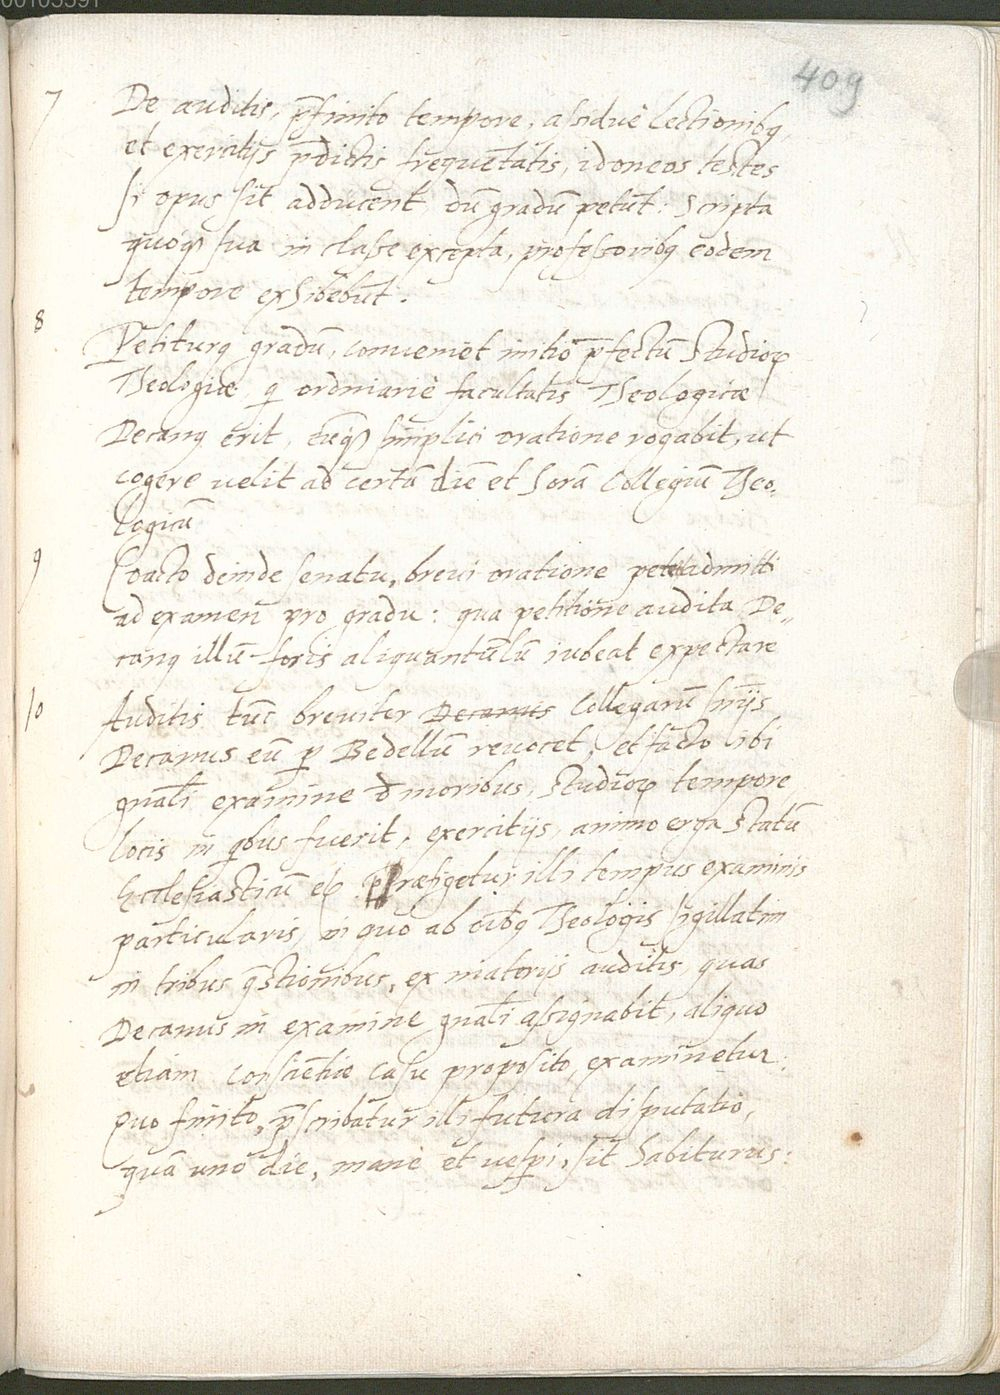 00103391
409
7 De auditis, p̄finito tempore, assiduè lectionibq
et exercitijs p̄dictis frequētatis, idoneos testes
si opus sit adducent, dū gradū petūt: Scripta
quoqꝫ sua in classe excepta, professoribq eodem
tempore exhibebūt.
8 Petiturq gradū, conveniet initio p̄fectū Studioꝝ
Theologiae, q ordinariè facultatis Theologicae
Decanq erit, eūqꝫ simplici oratione rogabit, ut
cogere velit ad certā diē et horā Collegiū Theo-
logicū
9 Coacto deinde senatu, brevi oratione petet admitti
ad examen pro gradu: qua petitione audita, De„
canq illū foris aliquantulū iubeat expectare
10 Auditis tūc breuiter Decanus Collegarū sn̄ijs
Decanus eū ꝑ Bedellū reuocet, et facto ibi
gn̄ali examine d̄ moribus, Studioꝝ tempore
locis in qbus fuerit, exercitijs, animo erga Statū
Ecclesiasticū etc. praefigetur illi tempus examinis
particularis, in quo ab oībq Theologis sigillatim
in tribus q̄stionibus, ex materijs auditis, quas
Decanus in examine gn̄ali assignabit, aliquo
etiam conscientiae casu proposito, examinetur:
Quo finito, p̄scribatur illi futura disputatio,
quā uno die, manè et vesꝑi, sit habiturus: